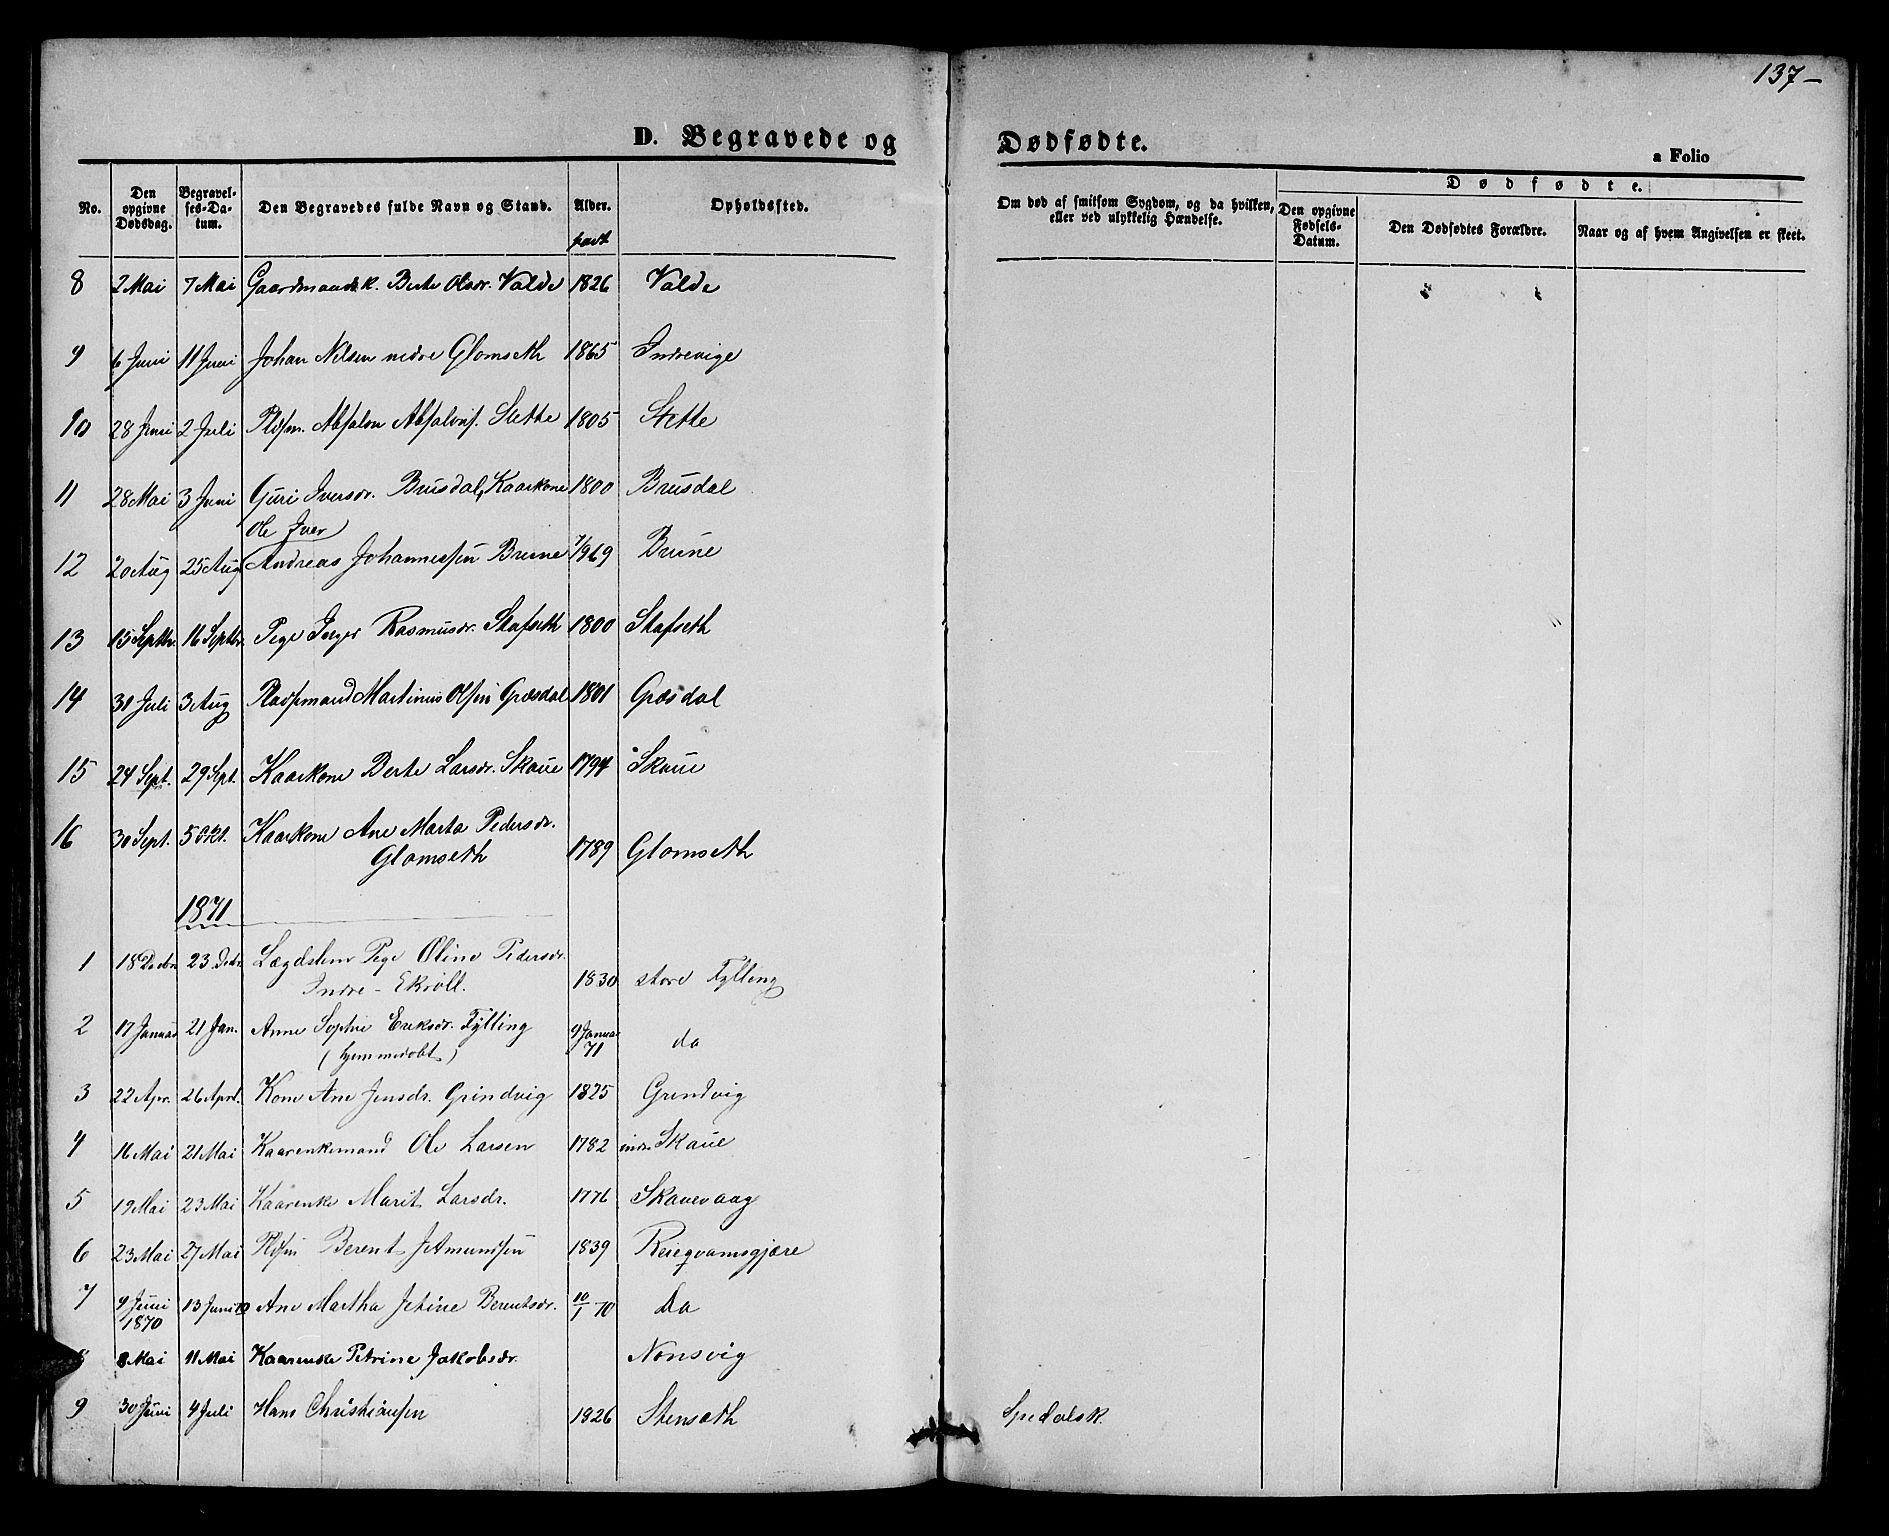 137-
D. Begravede og Dødfødte.
a Folio
No.
Den opgivne Dødsdag.
Begravelses-Datum.
Den Begravedes fulde Navn og Stand.
Alder.
født
Opholdssted.
Om død af smitsom Sygdom, og da hvilken, eller ved ulykkelig Hændelse.
Dødfødte.
Den opgivne Fødsels-Datum.
Den Dødfødtes Forældre.
Naar og af hvem Angivelsen er skeet.
8 2 Mai 7 Mai Gaardmandsk. Berte Olsdr. Valde 1826 Valde
9 6 Juni 11 Juni Johan Nelsen nedre Glomseth 1865 Indrevige
10 28 Juni 2 Juli Absalon Absalons. Slette 1805 Slette
11 28 Mai 3 Juni Guri Iversdr. Brusdal, Kaarkone 1800 Brusdal
Ole Iver
12 20 Aug 25 Aug Andreas Johannessen Brune 7/9 69 Brune
13 15 Septbr. 16 Septbr. Pege Inger Rasmusdr. Stafseth 1800 Stafseth
14 31 Juli 3 Aug Pladsmand Martinus Olsen Græsdal 1801 Græsdal
15 24 Sept. 29 Sept. Kaarkone Berte Larsdr. Skoue 1794 Skoue
16 30 Sept. 5 Okt. Kaarkone Ane Marta Pedersdr.
Glomseth 1789 Glomseth
1871
1 18 Decbr 23 Decbr Lægdslem Pege Oline Pedersdr.
Indre - Ekroll. 1830 store Fylling
2 17 Januar 21 Jan. Anne Sophie Eriksdr. Fylling 9 Januar 71 do
(hjemmedøbt)
3 22 Apr. 26 Apri. Kone Ane Jensdr. Grindvig 1825 Grindvig
4 16 Mai 21 Mai Kaarenkemand Ole Larsen 1782 indr. Skoue
5 19 Mai 23 Mai Kaarenke Marit Larsdr. 1776 Skouevaag
6 23 Mai 27 Mai Berent J. Amundsen 1839 Reieqvamsgjære
7 9 Juni 1870 13 Juni 70 Ane Martha Jetine Berentsdr. 10/1 70 Do
8 8 Mai 11 Mai Kaarenke Petrine Jakobsdr. Nonsvig
9 30 Juni 4 Juli Hans Christiansen 1826 Stenseth Spedalsk.